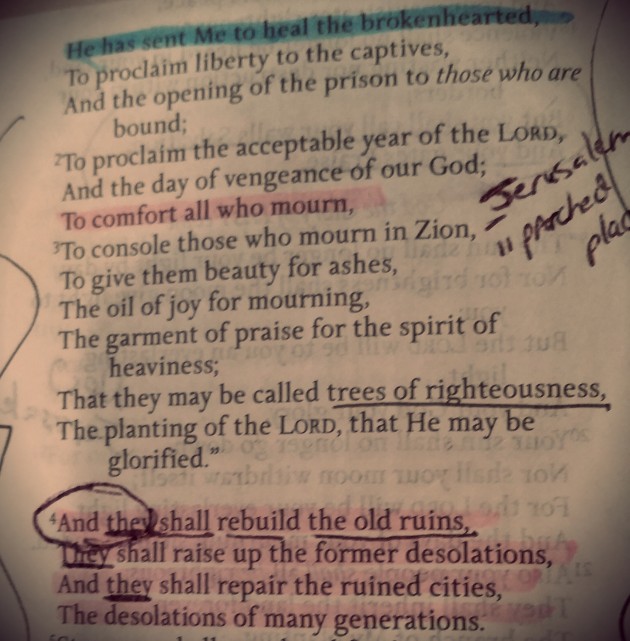 He has sent Me to heal the brokenhearted,
To proclaim liberty to the captives,
And the opening of the prison to those who are
bound;
²To proclaim the acceptable year of the LORD,
And the day of vengeance of our God;
To comfort all who mourn,
³To console those who mourn in Zion,
Jerusalem
" parched
To give them beauty for ashes,
The oil of joy for mourning,
The garment of praise for the spirit of
heaviness;
That they may be called trees of righteousness,
The planting of the LORD, that He may be
glorified.”
⁴And they shall rebuild the old ruins,
They shall raise up the former desolations,
And they shall repair the ruined cities,
The desolations of many generations.